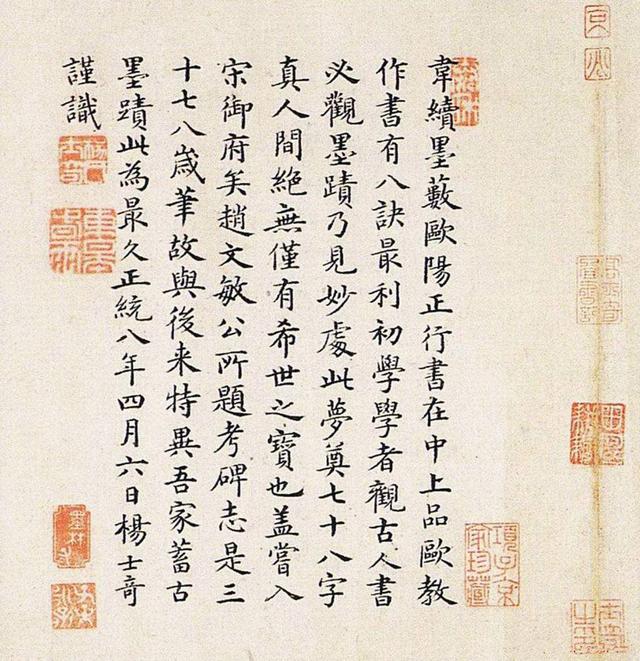 韋續墨藪歐陽正行書在中上品歐教
作書有八訣最利初學學者觀古人書
必觀墨蹟乃見妙處此夢奠七十八字
真人間絕無僅有希世之寶也盖嘗入
宋御府矣趙文敏公所題考碑志是三
十七八歲筆故與後来特異吾家蓄古
墨蹟此為最久正統八年四月六日楊士奇
謹識
項子京
家珍藏
墨林